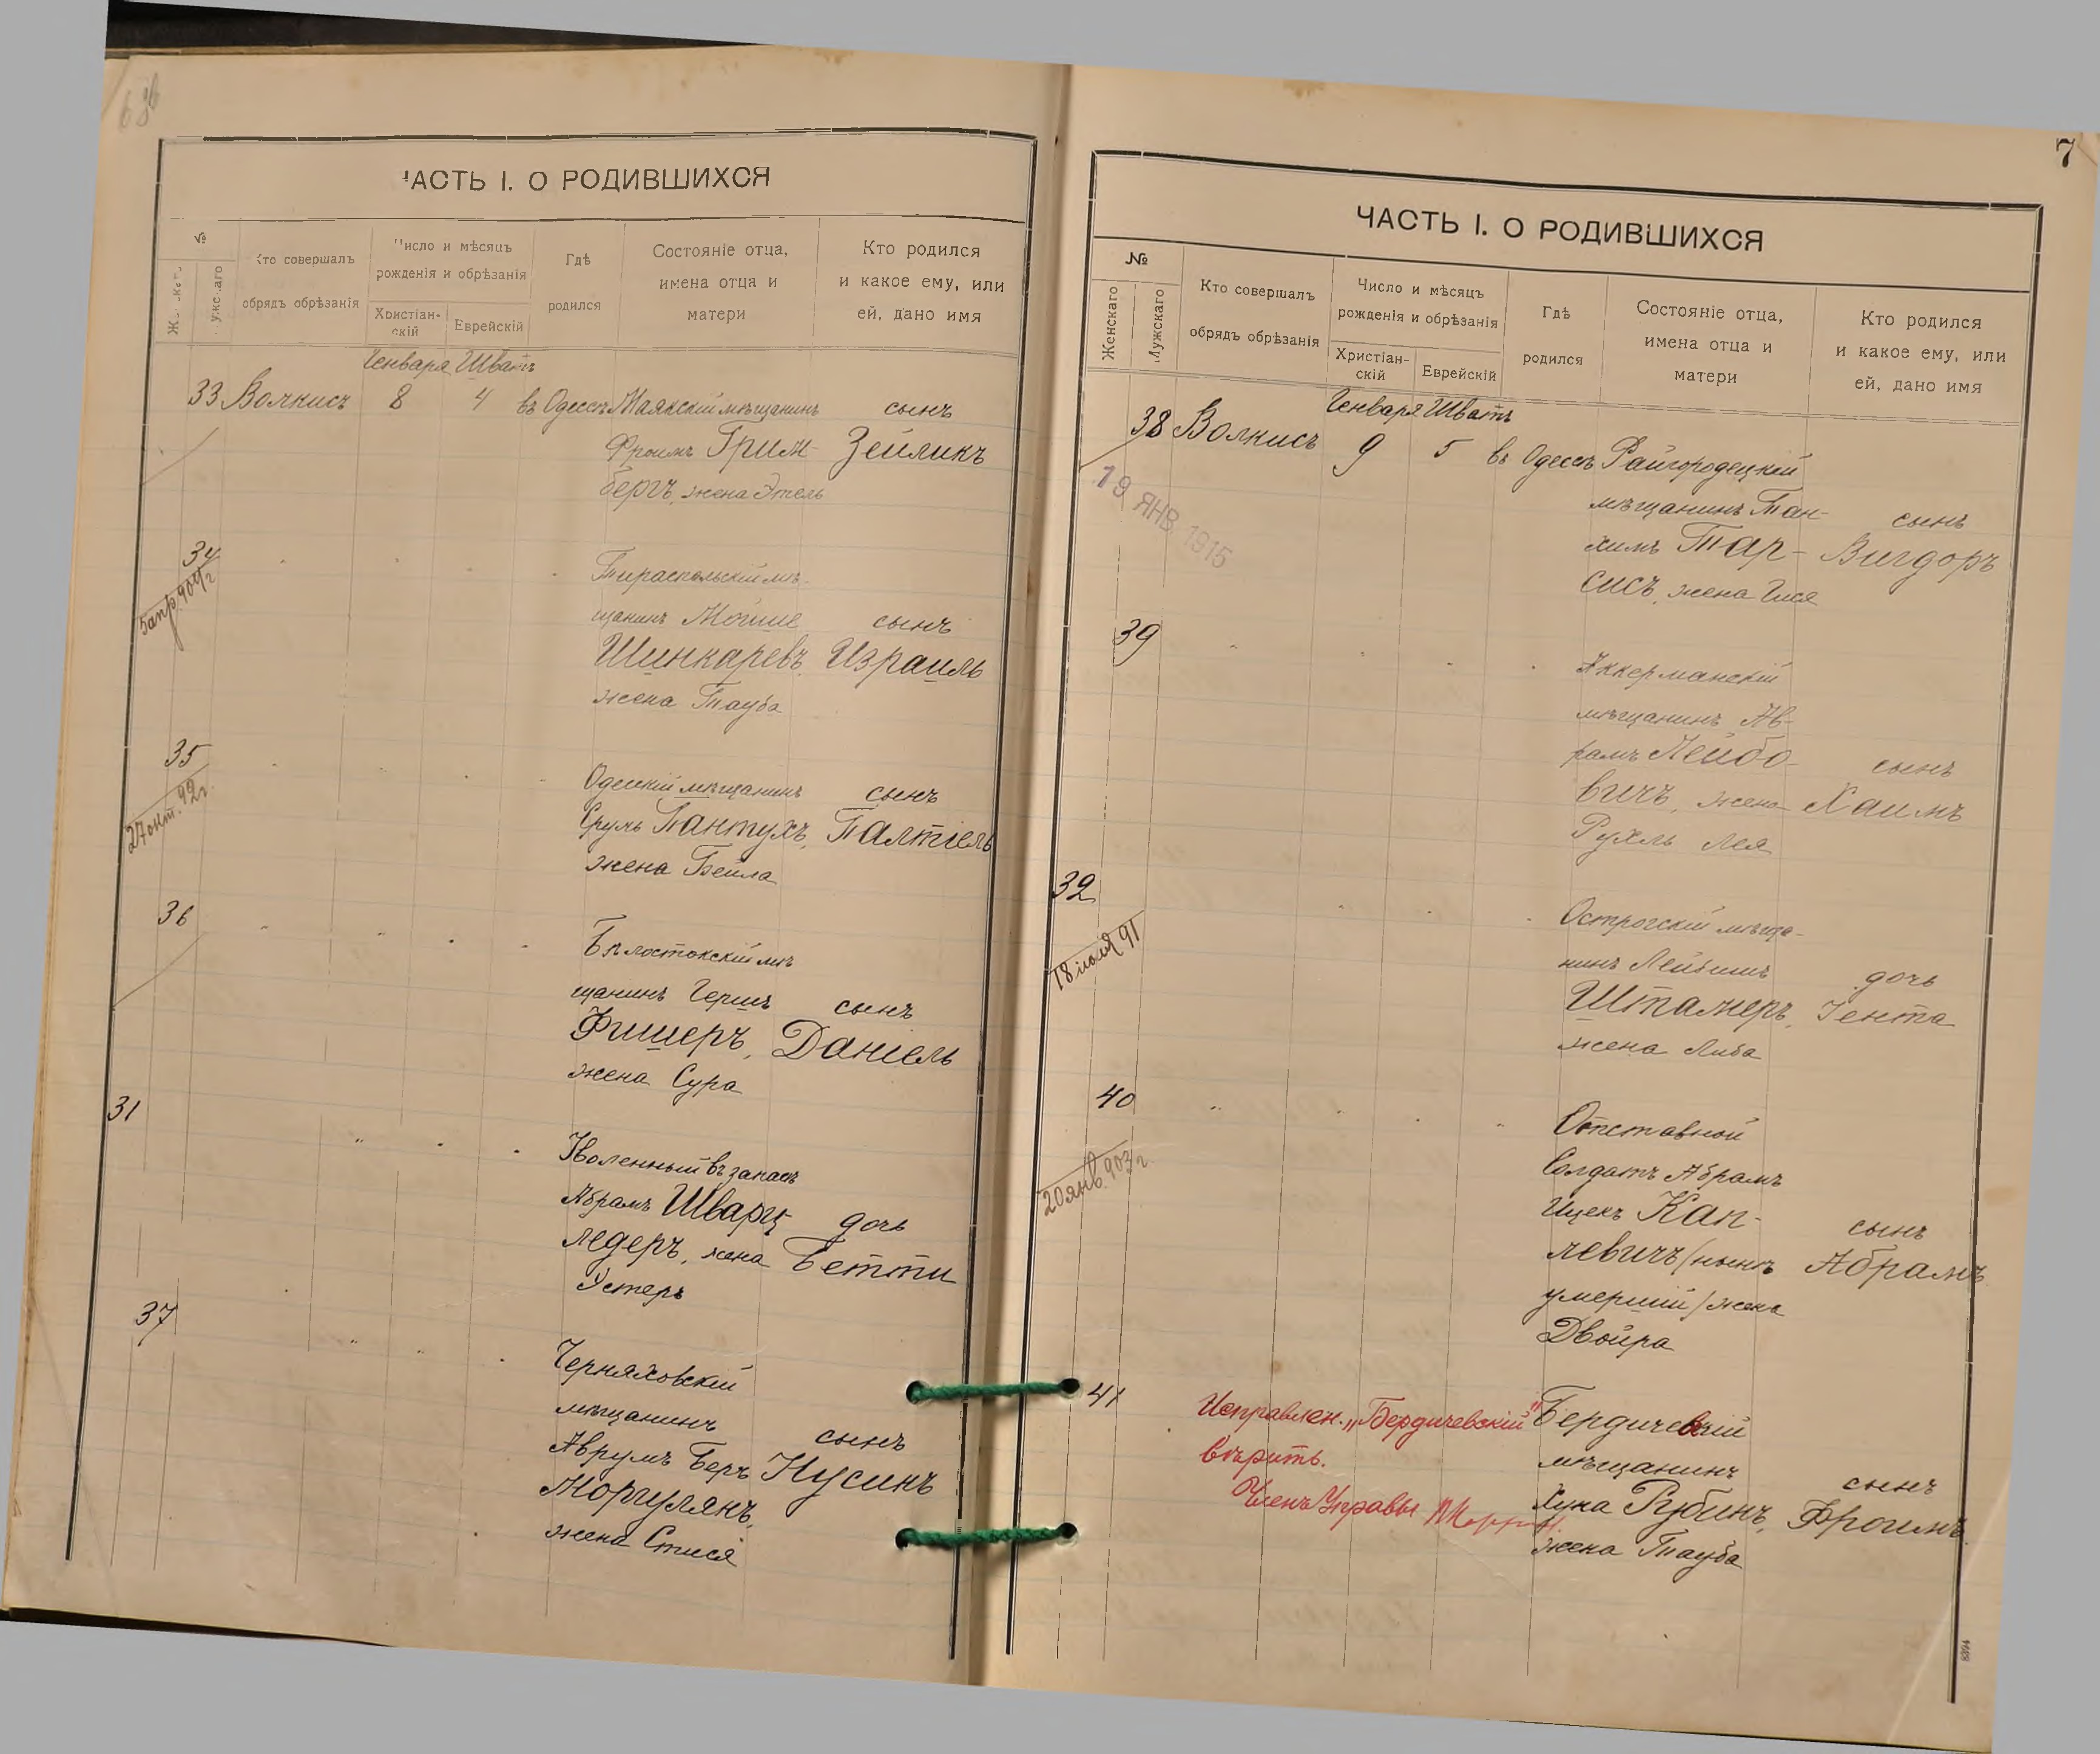 ЧАСТЬ I. О РОДИВШИХСЯ
№
Кто совершалъ
обрядъ обрѣзанія
Число и мѣсяцъ
рожденія и обрѣзанія
Христіан-
скій
Еврейскій
Гдѣ
родился
Состояніе отца,
имена отца и
матери
Кто родился
и какое ему, или
ей, дано имя
Генваря Шватъ
33 Волкисъ 8 4 въ Одессѣ Маякскій мѣщанинъ сынъ
Фроимъ Грин- Зейликъ
бергъ, жена Этель
34
5 апр 904 г.
Тираспольскій мѣ-
щанинъ Мойше сынъ
Шинкаревъ, Израиль
жена Тауба
35
27 окт. 92 г.
Одесскій мѣщанинъ сынъ
Срулъ Пантухъ, Палтіель
жена Бейла
36
Бѣлостокскій мѣ
щанинъ Гершъ сынъ
Фишеръ, Даніель
жена Сура
31
Уволенный въ запасъ
Абрамъ Шварц- дочь
ледеръ, жена Бетти
Эстеръ
37
Черняховскій
мѣщанинъ сынъ
Аврумъ Беръ Нусинъ
Моргулянъ,
жена Стися
7
ЧАСТЬ I. О РОДИВШИХСЯ
№
Женскаго
Мужскаго
Кто совершалъ
обрядъ обрѣзанія
Число и мѣсяцъ
рожденія и обрѣзанія
Христіан-
скій
Еврейскій
Гдѣ
родился
Состояніе отца,
имена отца и
матери
Кто родился
и какое ему, или
ей, дано имя
Генваря Шватъ
38 Волкисъ 9 5 въ Одессѣ Райгородецкій
19 ЯНВ. 1915
мѣщанинъ Тан- сынъ
химъ Тар- Вигдоръ
сисъ, жена Гися
39
Аккерманскій
мѣщанинъ Ав-
рамъ Лейбо- сынъ
вичъ, жена Хаимъ
Рухль Лея
32
18 июля 91
Острогскій мѣща-
нинъ Лейбишъ дочь
Штамеръ, Гента
жена Либа
40
20 янв. 903 г.
Отставной
Солдатъ Абрамъ
Ицекъ Кап- сынъ
левичъ (нынѣ Абрамъ
умершій) жена
Двойра
41
Исправлен. „Бердичевскій"
вѣрить.
Членъ Управы
Бердичевскій
мѣщанинъ сынъ
Хуна Рубинъ, Фроимъ
жена Тауба